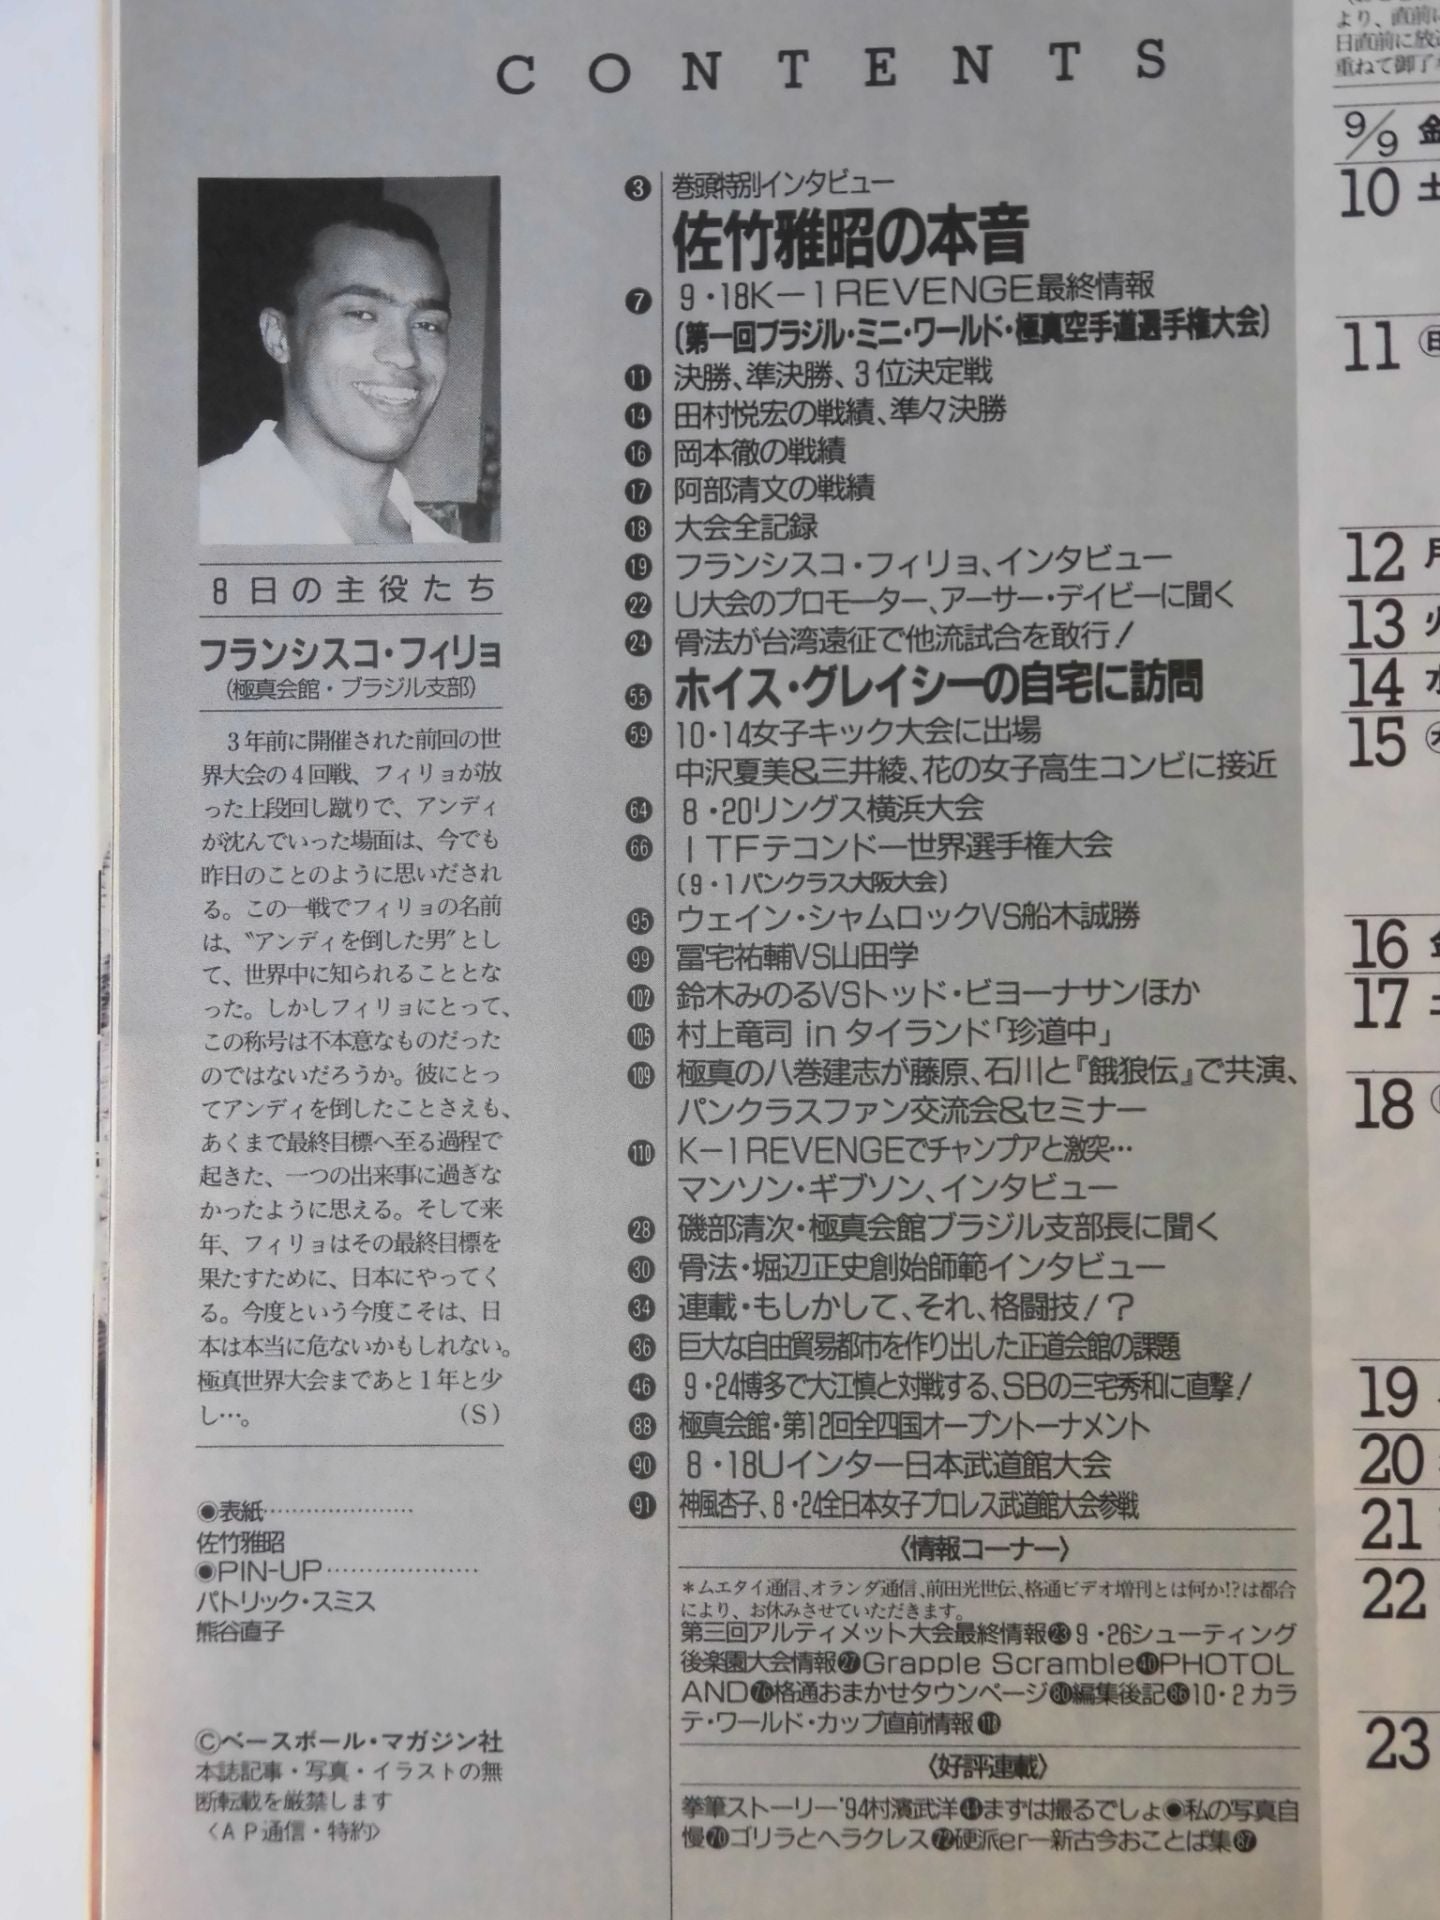 CONTENTS
8日の主役たち
フランシスコ・フィリョ
(極真会館・ブラジル支部)
3年前に開催された前回の世
界大会の4回戦、フィリョが放
った上段回し蹴りで、アンディ
が沈んでいった場面は、今でも
昨日のことのように思いだされ
る。この一戦でフィリョの名前
は、〝アンディを倒した男〟とし
て、世界中に知られることとな
った。しかしフィリョにとって、
この称号は不本意なものだった
のではないだろうか。彼にとっ
てアンディを倒したことさえも、
あくまで最終目標へ至る過程で
起きた、一つの出来事に過ぎな
かったように思える。そして来
年、フィリョはその最終目標を
果たすために、日本にやってく
る。今度という今度こそは、日
本は本当に危ないかもしれない。
極真世界大会まであと1年と少
し…。 (S)
◉表紙…………………
佐竹雅昭
◉PIN-UP…………………
パトリック・スミス
熊谷直子
©ベースボール・マガジン社
本誌記事・写真・イラストの無
断転載を厳禁します
〈AP通信・特約〉
3 巻頭特別インタビュー
佐竹雅昭の本音
7 9・18K－1REVENGE最終情報
(第一回ブラジル・ミニ・ワールド・極真空手道選手権大会)
11 決勝、準決勝、3位決定戦
14 田村悦宏の戦績、準々決勝
16 岡本徹の戦績
17 阿部清文の戦績
18 大会全記録
19 フランシスコ・フィリョ、インタビュー
22 U大会のプロモーター、アーサー・デイビーに聞く
24 骨法が台湾遠征で他流試合を敢行!
55 ホイス・グレイシーの自宅に訪問
59 10・14女子キック大会に出場
中沢夏美&三井綾、花の女子高生コンビに接近
64 8・20リングス横浜大会
66 ITFテコンドー世界選手権大会
(9・1パンクラス大阪大会)
95 ウェイン・シャムロックVS船木誠勝
99 冨宅祐輔VS山田学
102 鈴木みのるVSトッド・ビヨーナサンほか
105 村上竜司 in タイランド「珍道中」
109 極真の八巻建志が藤原、石川と『餓狼伝』で共演、
パンクラスファン交流会&セミナー
110 K－1REVENGEでチャンプアと激突…
マンソン・ギブソン、インタビュー
28 磯部清次・極真会館ブラジル支部長に聞く
30 骨法・堀辺正史創始師範インタビュー
34 連載・もしかして、それ、格闘技!?
36 巨大な自由貿易都市を作り出した正道会館の課題
46 9・24博多で大江慎と対戦する、SBの三宅秀和に直撃!
88 極真会館・第12回全四国オープントーナメント
90 8・18Uインター日本武道館大会
91 神風杏子、8・24全日本女子プロレス武道館大会参戦
〈情報コーナー〉
*ムエタイ通信、オランダ通信、前田光世伝、格通ビデオ増刊とは何か!?は都合
により、お休みさせていただきます。
第三回アルティメット大会最終情報23 9・26シューティング
後楽園大会情報27 Grapple Scramble40 PHOTOL
AND76 格通おまかせタウンページ80 編集後記86 10・2カラ
テ・ワールド・カップ直前情報
〈好評連載〉
拳筆ストーリー'94村濱武洋44 まずは撮るでしょ◉私の写真自
慢70 ゴリラとヘラクレス72 硬派er－新古今おことば集87
より、直前に
日直前に放
重ねて御了
9/9 金
10 土
11 日
12 月
13 火
14 水
15 木
16 金
17 土
18
19
20
21
22
23